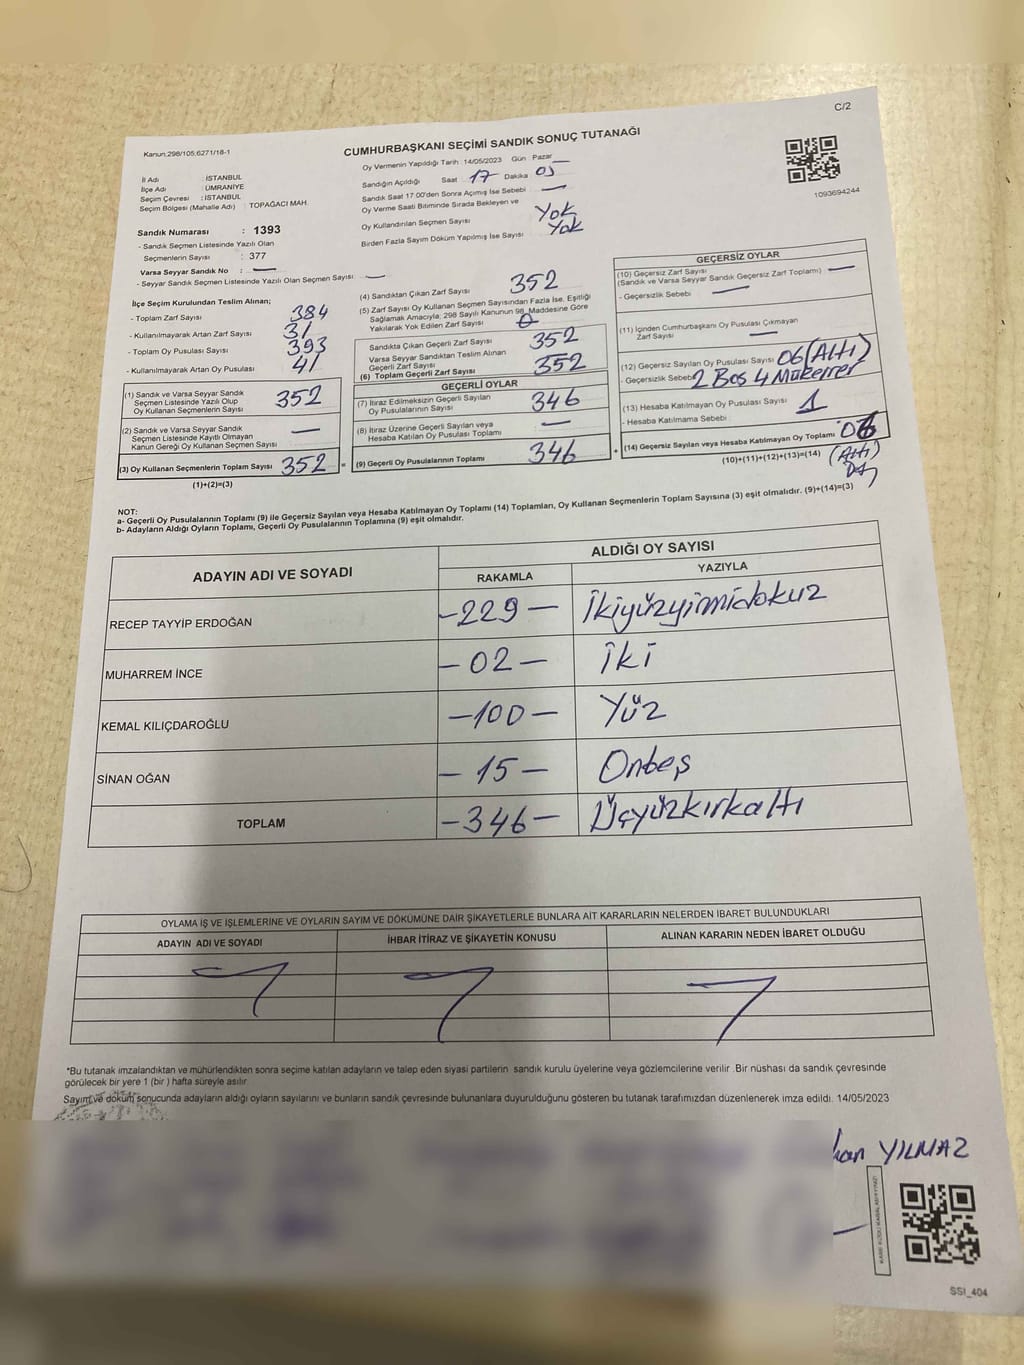 C/2
Kanun;298/105;6271/18-1
CUMHURBAŞKANI SEÇİMİ SANDIK SONUÇ TUTANAĞI
1093694244
İl Adı : İSTANBUL
İlçe Adı : ÜMRANİYE
Seçim Çevresi : İSTANBUL
Seçim Bölgesi (Mahalle Adı) : TOPAĞACI MAH.
Oy Vermenin Yapıldığı Tarih : 14/05/2023 Gün : Pazar
Sandığın Açıldığı Saat 17 Dakika 05
Sandık Saat 17:00'den Sonra Açılmış İse Sebebi —
Oy Verme Saati Bitiminde Sırada Bekleyen ve
Oy Kullandırılan Seçmen Sayısı Yok
Birden Fazla Sayım Döküm Yapılmış İse Sayısı Yok
Sandık Numarası : 1393
- Sandık Seçmen Listesinde Yazılı Olan
Seçmenlerin Sayısı : 377
Varsa Seyyar Sandık No : —
- Seyyar Sandık Seçmen Listesinde Yazılı Olan Seçmen Sayısı —
İlçe Seçim Kurulundan Teslim Alınan;
- Toplam Zarf Sayısı 384
- Kullanılmayarak Artan Zarf Sayısı 31
- Toplam Oy Pusulası Sayısı 393
- Kullanılmayarak Artan Oy Pusulası 41
(1) Sandık ve Varsa Seyyar Sandık
Seçmen Listesinde Yazılı Olup
Oy Kullanan Seçmenlerin Sayısı 352
(2) Sandık ve Varsa Seyyar Sandık
Seçmen Listesinde Kayıtlı Olmayan
Kanun Gereği Oy Kullanan Seçmen Sayısı —
(3) Oy Kullanan Seçmenlerin Toplam Sayısı 352 =
(1)+(2)=(3)
(4) Sandıktan Çıkan Zarf Sayısı 352
(5) Zarf Sayısı Oy Kullanan Seçmen Sayısından Fazla İse, Eşitliği
Sağlamak Amacıyla, 298 Sayılı Kanunun 98. Maddesine Göre
Yakılarak Yok Edilen Zarf Sayısı 0
Sandıkta Çıkan Geçerli Zarf Sayısı 352
Varsa Seyyar Sandıktan Teslim Alınan
Geçerli Zarf Sayısı
(6) Toplam Geçerli Zarf Sayısı 352
GEÇERLİ OYLAR
(7) İtiraz Edilmeksizin Geçerli Sayılan
Oy Pusulalarının Sayısı 346
(8) İtiraz Üzerine Geçerli Sayılan veya
Hesaba Katılan Oy Pusulası Toplamı —
(9) Geçerli Oy Pusulalarının Toplamı 346 +
GEÇERSİZ OYLAR
(10) Geçersiz Zarf Sayısı
(Sandık ve Varsa Seyyar Sandık Geçersiz Zarf Toplamı) —
- Geçersizlik Sebebi —
(11) İçinden Cumhurbaşkanı Oy Pusulası Çıkmayan
Zarf Sayısı —
(12) Geçersiz Sayılan Oy Pusulası Sayısı 06 (Altı)
- Geçersizlik Sebebi 2 Boş 4 Mükerrer
(13) Hesaba Katılmayan Oy Pusulası Sayısı 1
- Hesaba Katılmama Sebebi
(14) Geçersiz Sayılan veya Hesaba Katılmayan Oy Toplamı 06
(10)+(11)+(12)+(13)=(14) (Altı)
NOT:
a- Geçerli Oy Pusulalarının Toplamı (9) ile Geçersiz Sayılan veya Hesaba Katılmayan Oy Toplamı (14) Toplamları, Oy Kullanan Seçmenlerin Toplam Sayısına (3) eşit olmalıdır. (9)+(14)=(3)
b- Adayların Aldığı Oyların Toplamı, Geçerli Oy Pusulalarının Toplamına (9) eşit olmalıdır.
ADAYIN ADI VE SOYADI ALDIĞI OY SAYISI
RAKAMLA YAZIYLA
RECEP TAYYİP ERDOĞAN -229- İkiyüzyirmidokuz
MUHARREM İNCE -02- İki
KEMAL KILIÇDAROĞLU -100- Yüz
SİNAN OĞAN -15- Onbeş
TOPLAM -346- Üçyüzkırkaltı
OYLAMA İŞ VE İŞLEMLERİNE VE OYLARIN SAYIM VE DÖKÜMÜNE DAİR ŞİKAYETLERLE BUNLARA AİT KARARLARIN NELERDEN İBARET BULUNDUKLARI
ADAYIN ADI VE SOYADI İHBAR İTİRAZ VE ŞİKAYETİN KONUSU ALINAN KARARIN NEDEN İBARET OLDUĞU
*Bu tutanak imzalandıktan ve mühürlendikten sonra seçime katılan adayların ve talep eden siyasi partilerin sandık kurulu üyelerine veya gözlemcilerine verilir .Bir nüshası da sandık çevresinde
görülecek bir yere 1 (bir ) hafta süreyle asılır.
Sayım ve döküm sonucunda adayların aldığı oyların sayılarını ve bunların sandık çevresinde bulunanlara duyurulduğunu gösteren bu tutanak tarafımızdan düzenlenerek imza edildi. 14/05/2023
YILMAZ
SSI_404